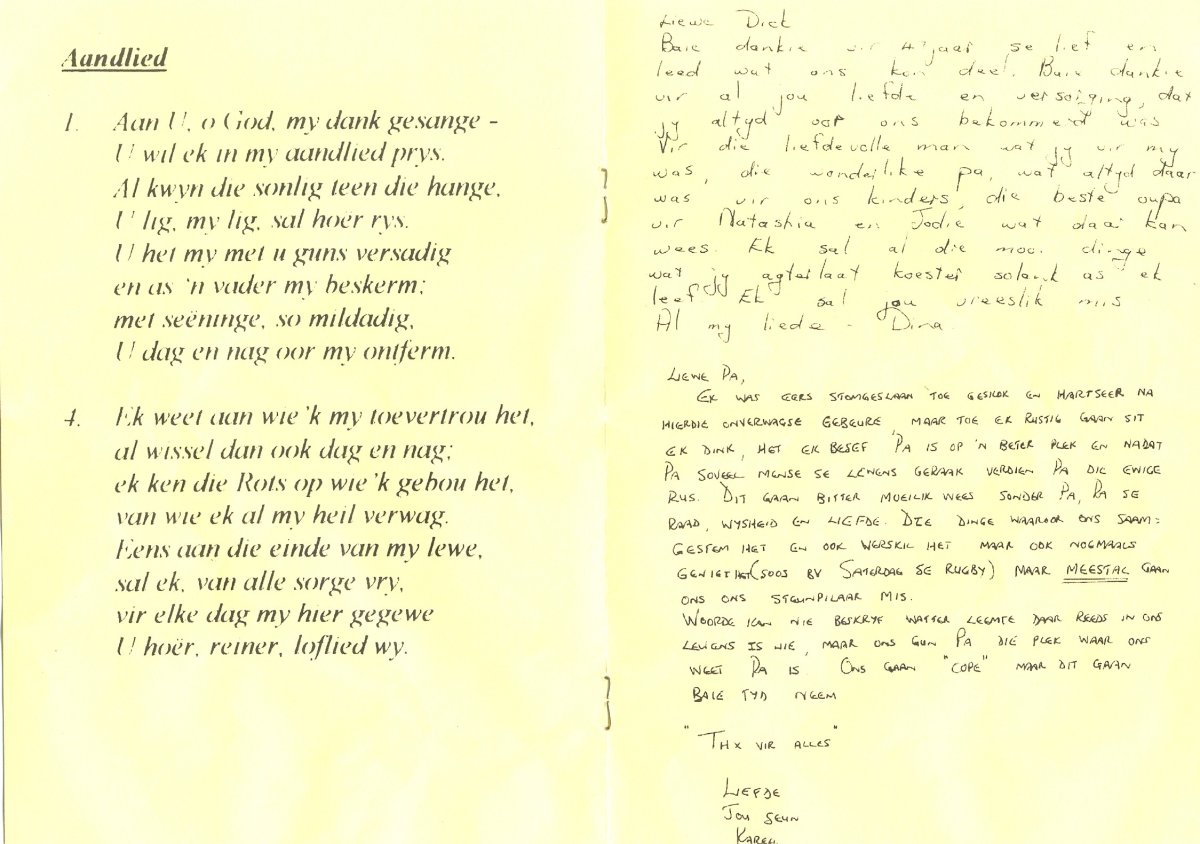 Aandlied
1. Aan U, o God, my dank gesange -
U wil ek in my aandlied prys.
Al kwyn die sonlig teen die hange,
U lig, my lig, sal hoer rys.
U het my met u guns versadig
en as 'n vader my beskerm;
met seëninge, so mildadig,
U dag en nag oor my ontferm.
4. Ek weet aan wie 'k my toevertrou het,
al wissel dan ook dag en nag;
ek ken die Rots op wie 'k gebou het,
van wie ek al my heil verwag.
Eens aan die einde van my lewe,
sal ek, van alle sorge vry,
vir elke dag my hier gegewe
U hoër, reiner, loflied wy.
Liewe Dick
Baie dankie vir jaar se lief en
leed wat ons kon deel. Baie dankie
vir al jou liefde en versorging, dat
jy altyd oor ons bekommerd was
Vir die liefdevolle man wat jy vir my
was, die wonderlike pa, wat altyd daar
was vir ons kinders, die beste oupa
vir Natashia en Jodie wat daar kan
wees. Ek sal al die mooi dinge
wat jy agterlaat koester solank as ek
leef Ek sal jou vreeslik mis
Al my liefde - Dina
LIEWE PA,
EK WAS EERS STOMGESLAAN TOE GESKOK EN HARTSEER NA
HIERDIE ONVERWAGSE GEBEURE, MAAR TOE EK RUSTIG GAAN SIT
EK DINK, HET EK BESEF PA IS OP 'N BETER PLEK EN NADAT
PA SOVEEL MENSE SE LEWENS GERAAK VERDIEN PA DIE EWIGE
RUS. DIT GAAN BITTER MOEILIK WEES SONDER PA, PA SE
RAAD, WYSHEID EN LIEFDE. DIE DINGE WAAROOR ONS SAAM-
GESTEM HET EN OOK VERSKIL HET MAAR OOK NOGMAALS
GENIET HET (SOOS BV SATERDAG SE RUGBY) MAAR MEESTAL GAAN
ONS ONS STEUNPILAAR MIS.
WOORDE KAN NIE BESKRYF WATTER LEEMTE DAAR REEDS IN ONS
LEWENS IS NIE, MAAR ONS GUN PA DIE PLEK WAAR ONS
WEET PA IS. ONS GAAN "COPE" MAAR DIT GAAN
BAIE TYD NEEM
"THX VIR ALLES"
LIEFDE
JOU SEUN
KAREL